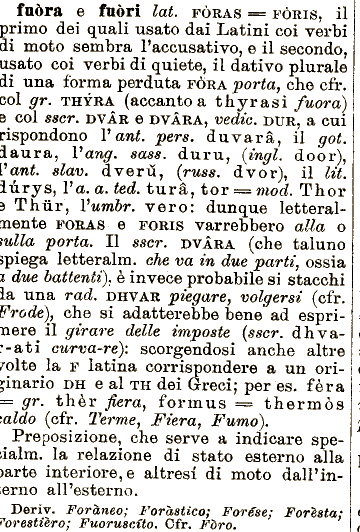 fuòra e fuòri lat. FÒRAS = FÒRIS, il
primo dei quali usato dai Latini coi verbi
di moto sembra l'accusativo, e il secondo,
usato coi verbi di quiete, il dativo plurale
di una forma perduta FÒRA porta, che cfr.
col gr. THÝRA (accanto a thyrasi fuora)
e col sscr. DVÂR e DVÂRA, vedic. DUR, a cui
rispondono l'ant. pers. duvarâ, il got.
daura, l'ang. sass. duru, (ingl. door),
l'ant. slav. dverŭ, (russ. dvor), il lit.
dúrys, l'a. a. ted. turâ, tor = mod. Thor
e Thür, l'umbr. vero: dunque letteral-
mente FORAS e FORIS varrebbero alla o
sulla porta. Il sscr. DVÂRA (che taluno
spiega letteralm. che va in due parti, ossia
a due battenti), è invece probabile si stacchi
da una rad. DHVAR piegare, volgersi (cfr.
Frode), che si adatterebbe bene ad espri-
mere il girare delle imposte (sscr. dhva-
r-ati curva-re): scorgendosi anche altre
volte la F latina corrispondere a un ori-
ginario DH e al TH dei Greci; per es. fèra
= gr. thèr fiera, formus = thermòs
caldo (cfr. Terme, Fiera, Fumo).
Preposizione, che serve a indicare spe-
cialm. la relazione di stato esterno alla
parte interiore, e altresí di moto dall'in-
terno all'esterno.
Deriv. Foràneo; Foràstico; Forése; Forèsta;
Forestièro; Fuoruscíto. Cfr. Fòro.